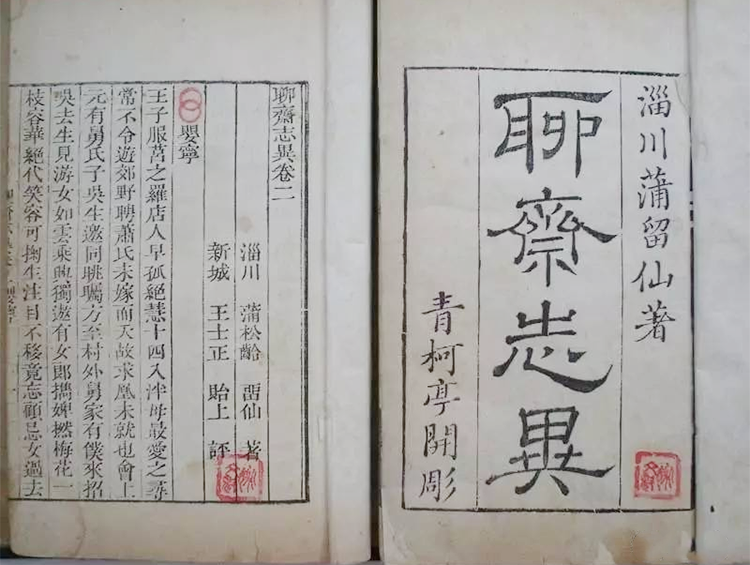 淄川蒲留仙著
聊齋志異
青柯亭開彫
聊齋志異卷二
淄川 蒲松齡 畱仙 著
新城 王士正 貽上 評
嬰寧
王子服莒之羅店人早孤絕慧十四入泮母最愛之尋
常不令遊郊野聘蕭氏未嫁而夭故求凰未就也會上
元有舅氏子吳生邀同眺矚方至村外舅家有僕來招
吳去生見游女如雲乘興獨遨有女郎擕婢撚梅花一
枝容華絕代笑容可掬生注目不移竟忘顧忌女過去